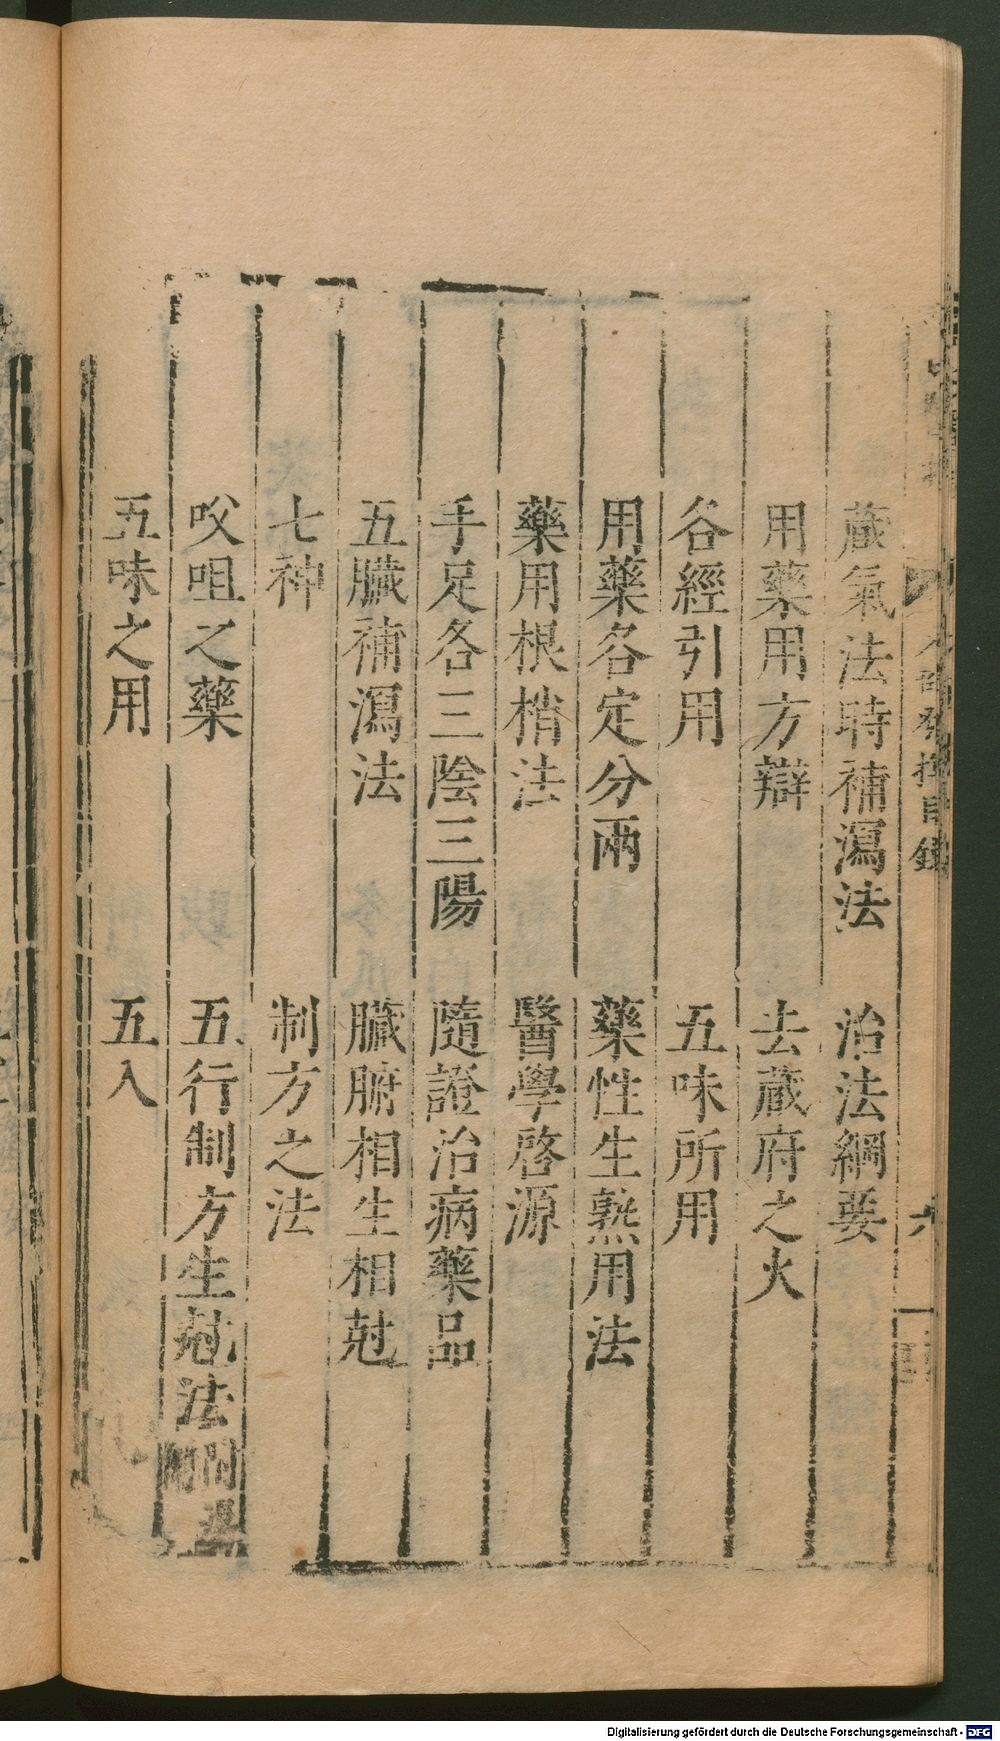 藏氣法時補瀉法　治法綱要
用藥用方辯　去藏府之火
各經引用　五味所用
用藥各定分兩　藥性生熟用法
藥用根梢法　醫學啓源
手足各三陰三陽　隨證治病藥品
五臟補瀉法　臟腑相生相尅
七神　制方之法
㕮咀之藥　五行制方生尅法
五味之用　五入
Digitalisierung gefördert durch die Deutsche Forschungsgemeinschaft - DFG